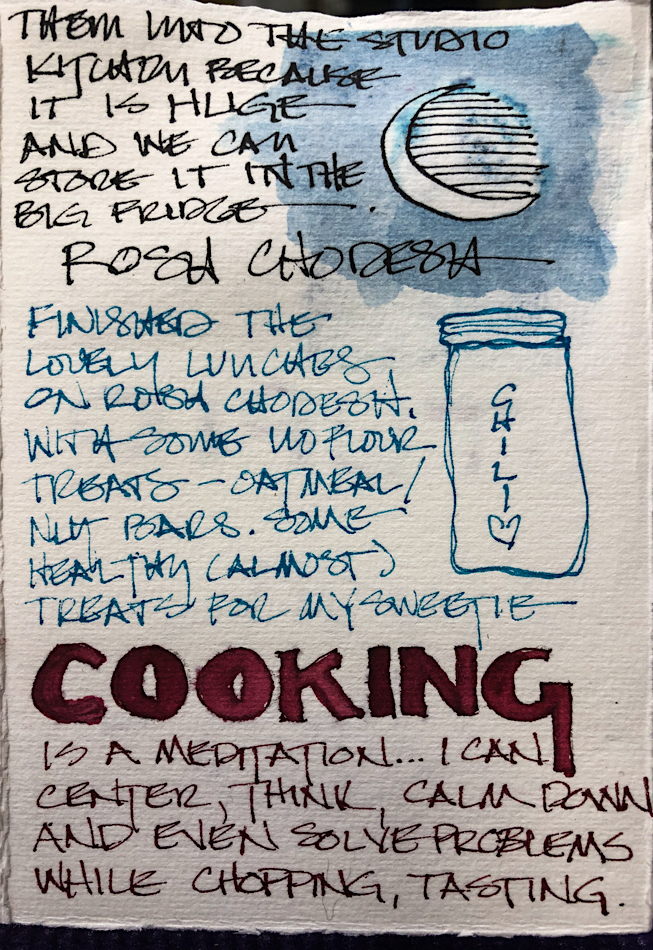 THEM INTO THE STUDIO
KITCHEN BECAUSE
IT IS HUGE
AND WE CAN
STORE IT IN THE
BIG FRIDGE.
ROSH CHODESH
FINISHED THE
LOVELY LUNCHES,
ON ROSH CHODESH.
WITH SOME NO FLOUR
TREATS - OATMEAL/
NUT BARS. SOME
HEALTHY (ALMOST)
TREATS FOR MY SWEETIE
CHILI
COOKING
IS A MEDITATION... I CAN
CENTER, THINK, CALM DOWN
AND EVEN SOLVE PROBLEMS
WHILE CHOPPING, TASTING.